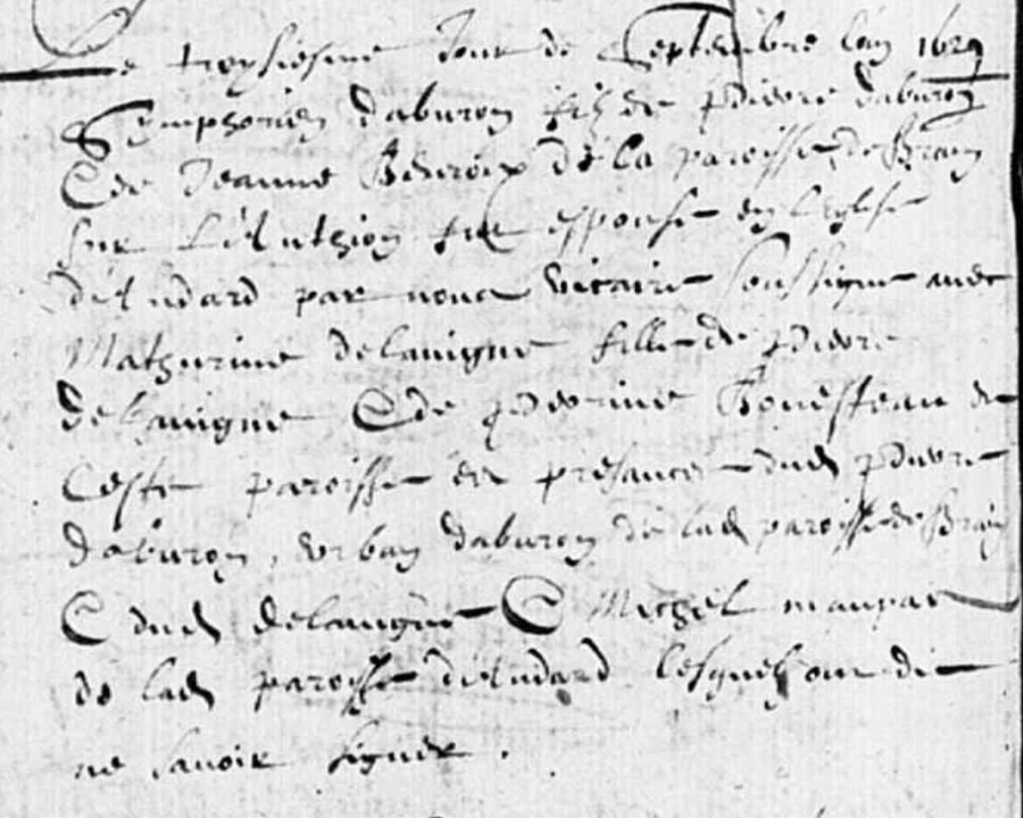 Le troysiesme Jour de Septembre lan 1629
Symphorien daburon filz de Pierre daburon
& de Jeanne de la paroisse de Brain
sur Lauthion fut espousé en Leglise
d'Andard par nous vicaire soussigné avec
Mathurine delavigne fille de Pierre
delavigne & de Perrine Bonesteau de
Ceste paroisse en presance dud Pierre
daburon, urban daburon de lad paroisse de Brain
& dud delavigne & Michel
de lad paroisse d'Andard lesquels ont dit
ne savoir signer .